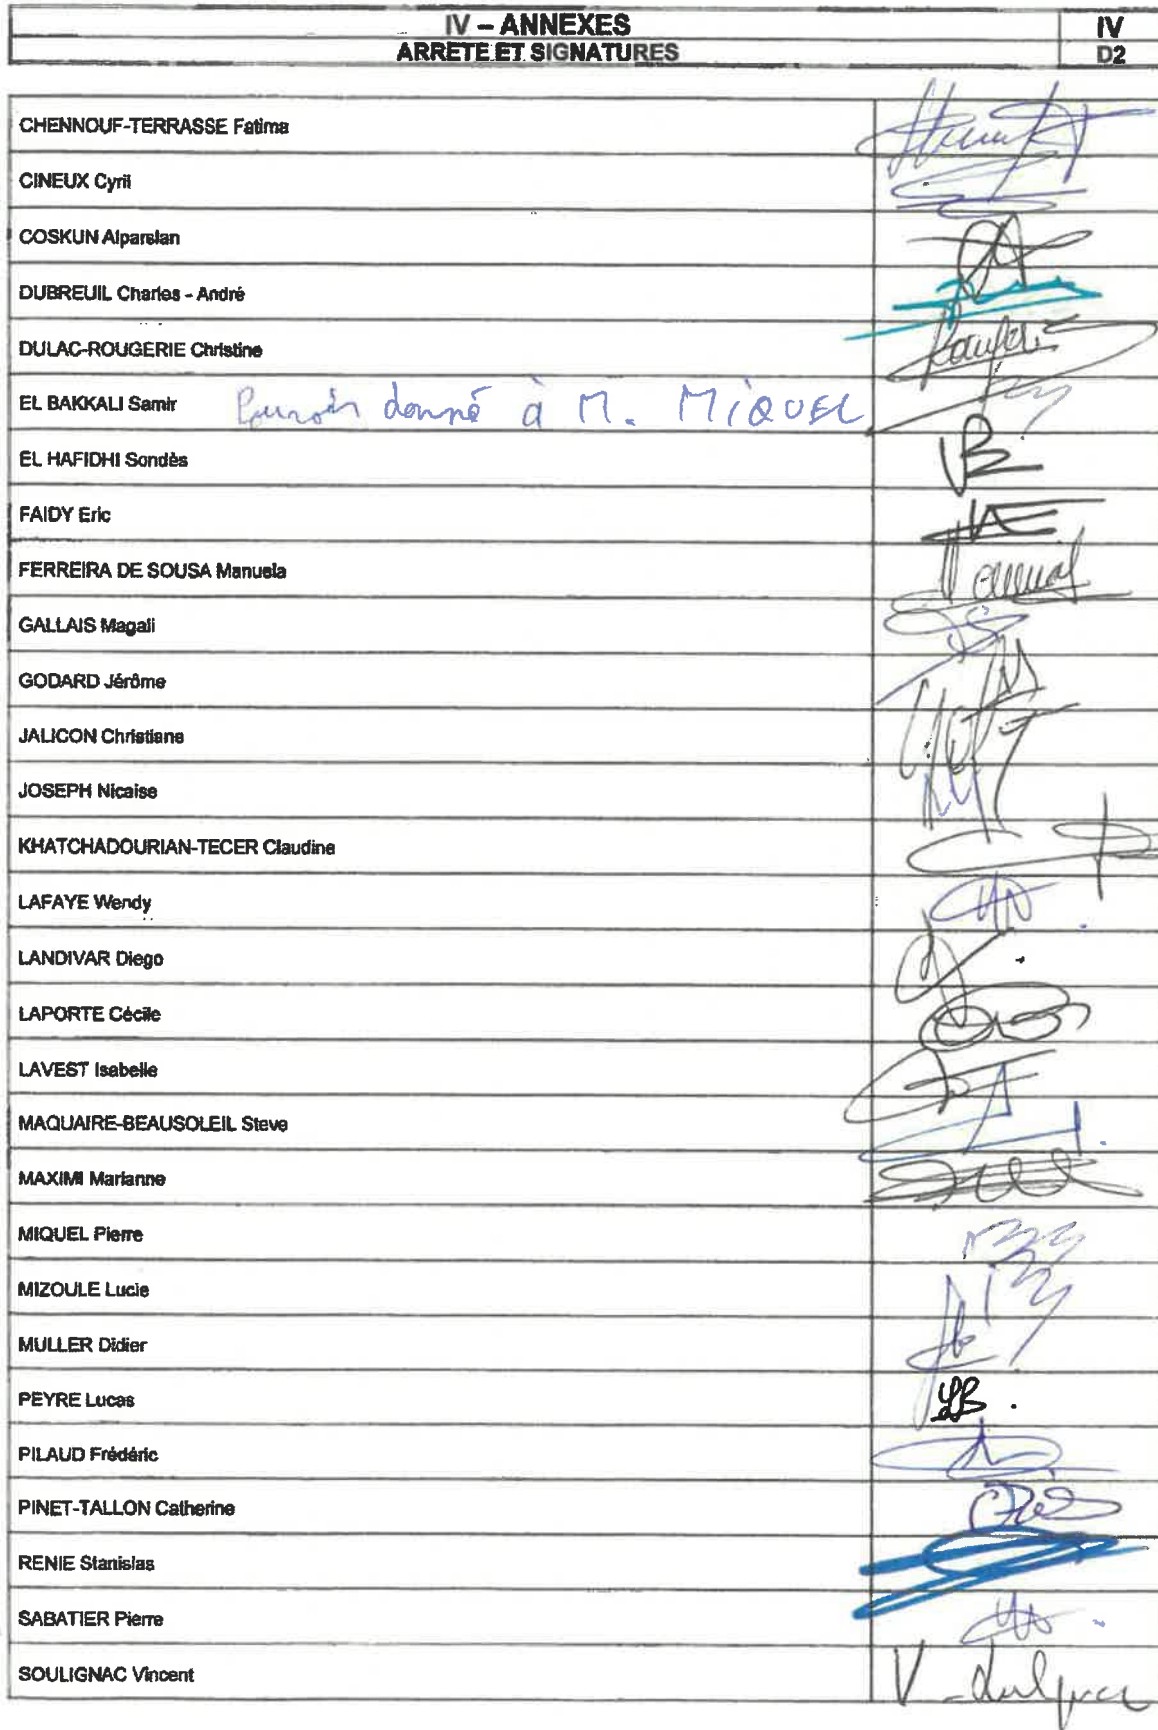 IV – ANNEXES
IV
ARRETE ET SIGNATURES
D2
CHENNOUF-TERRASSE Fatima
CINEUX Cyril
COSKUN Alparslan
DUBREUIL Charles - André
DULAC-ROUGERIE Christine
EL BAKKALI Samir Pouvoir donné à M. MIQUEL
EL HAFIDHI Sondès
FAIDY Eric
FERREIRA DE SOUSA Manuela
GALLAIS Magali
GODARD Jérôme
JALICON Christiane
JOSEPH Nicaise
KHATCHADOURIAN-TECER Claudine
LAFAYE Wendy
LANDIVAR Diego
LAPORTE Cécile
LAVEST Isabelle
MAQUAIRE-BEAUSOLEIL Steve
MAXIMI Marianne
MIQUEL Pierre
MIZOULE Lucie
MULLER Didier
PEYRE Lucas
PILAUD Frédéric
PINET-TALLON Catherine
RENIE Stanislas
SABATIER Pierre
SOULIGNAC Vincent